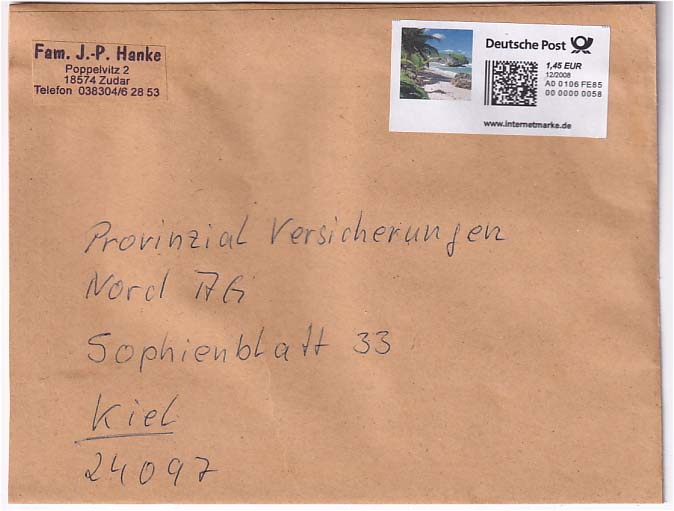 Fam. J.-P. Hanke
Poppelvitz 2
18574 Zudar
Telefon 038304/6 28 53
Deutsche Post
1,45 EUR
12/2008
A0 0106 FE85
00 0000 0058
www.internetmarke.de
Provinzial Versicherungen
Nord AG
Sophienblatt 33
Kiel
24097